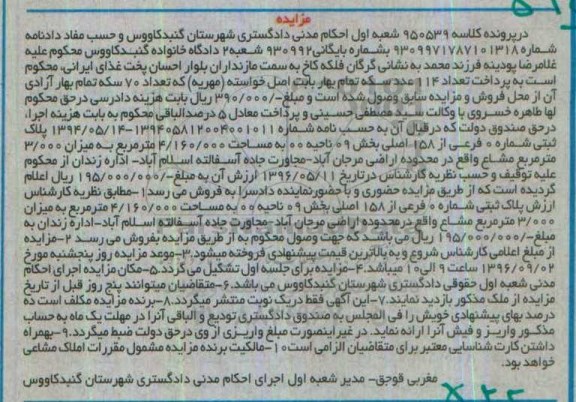 مزایده
درپرونده کلاسه ۹۵۰۵۳۹ شعبه اول احکام مدنی دادگستری شهرستان گنبدکاووس و حسب مفاد دادنامه
شماره ۹۳۰۹۹۷۱۷۸۷۱۰۱۳۱۸ بشماره بایگانی۹۳۰۹۹۲ شعبه۲ دادگاه خانواده گنبدکاووس محکوم علیه
غلامرضا پودینه فرزند محمد به نشانی گرگان فلکه کاخ به سمت مازندران بلوار احسان پخت غذای ایرانی، محکوم
است به پرداخت تعداد ۱۱۴ عدد سکه تمام بهار بابت اصل خواسته (مهریه) که تعداد ۷۰ سکه تمام بهار آزادی
آن از محل فروش و مزایده سابق وصول شده است و مبلغ-/۳۹۰/۰۰۰ ریال بابت هزینه دادرسی درحق محکوم
لها طاهره خسروی با وکالت سید مصطفی حسینی و پرداخت معادل ۵ درصدالباقی محکوم به بابت هزینه اجرا،
درحق صندوق دولت که درقبال آن به حسب نامه شماره ۱۳۹۴۰۵۸۱۲۰۰۴۰۰۱۰۱۱-۱۳۹۴/۰۵/۱۴ پلاک
ثبتی شماره ۰۰ فرعی از ۱۵۸ اصلی بخش ۰۹ ناحیه ۰۰ به مساحت ۴/۱۶۰/۰۰۰ مترمربع به میزان ۳/۰۰۰
مترمربع مشاع واقع در محدوده اراضی مرجان آباد-مجاورت جاده آسفالته اسلام آباد- اداره زندان از محکوم
علیه توقیف و حسب نظریه کارشناس درتاریخ ۱۳۹۶/۰۵/۱۱ ارزش آن به مبلغ-/۱۹۵/۰۰۰/۰۰۰ ریال اعلام
گردیده است که از طریق مزایده حضوری و با حضورنماینده دادسرا به فروش می رسد۱-مطابق نظریه کارشناس
ارزش پلاک ثبتی شماره ۰۰ فرعی از ۱۵۸ اصلی بخش ۰۹ ناحیه ۰۰ به مساحت ۴/۱۶۰/۰۰۰ مترمربع به میزان
۳/۰۰۰ مترمربع مشاع واقع در محدوده اراضی مرجان آباد-مجاورت جاده آسفالته اسلام آباد-اداره زندان به
مبلغ-/۱۹۵/۰۰۰/۰۰۰ ریال می باشد که جهت وصول محکوم به از طریق مزایده بفروش می رسد ۲-مزایده
از مبلغ اعلامی کارشناس شروع و به بالاترین قیمت پیشنهادی فروخته میشود.۳-موعد مزایده روز پنجشنبه مورخ
۱۳۹۶/۰۹/۰۲ ساعت ۹ الی۱۰ میباشد.۴-مزایده برای جلسه اول تشکیل می گردد.۵-مکان مزایده اجرای احکام
مدنی شعبه اول حقوقی دادگستری شهرستان گنبدکاووس می باشد.۶-متقاضیان میتوانند پنج روز قبل از تاریخ
مزایده از ملک مذکور بازدید نمایند.۷-این آگهی فقط دریک نوبت منتشر میگردد.۸-برنده مزایده مکلف است ده
درصد بهای پیشنهادی خویش را فی المجلس به صندوق دادگستری تودیع و الباقی آنرا در مهلت یک ماه به حساب
مذکور واریز و فیش آنرا ارائه نماید. در غیراینصورت مبلغ واریزی از وی درحق دولت ضبط میگردد.۹-بهمراه
داشتن کارت شناسایی معتبر برای متقاضیان الزامی است۱۰-مالکیت برنده مزایده مشمول مقررات املاک مشاعی
خواهد بود.
مغربی قوجق- مدیر شعبه اول اجرای احکام مدنی دادگستری شهرستان گنبدکاووس